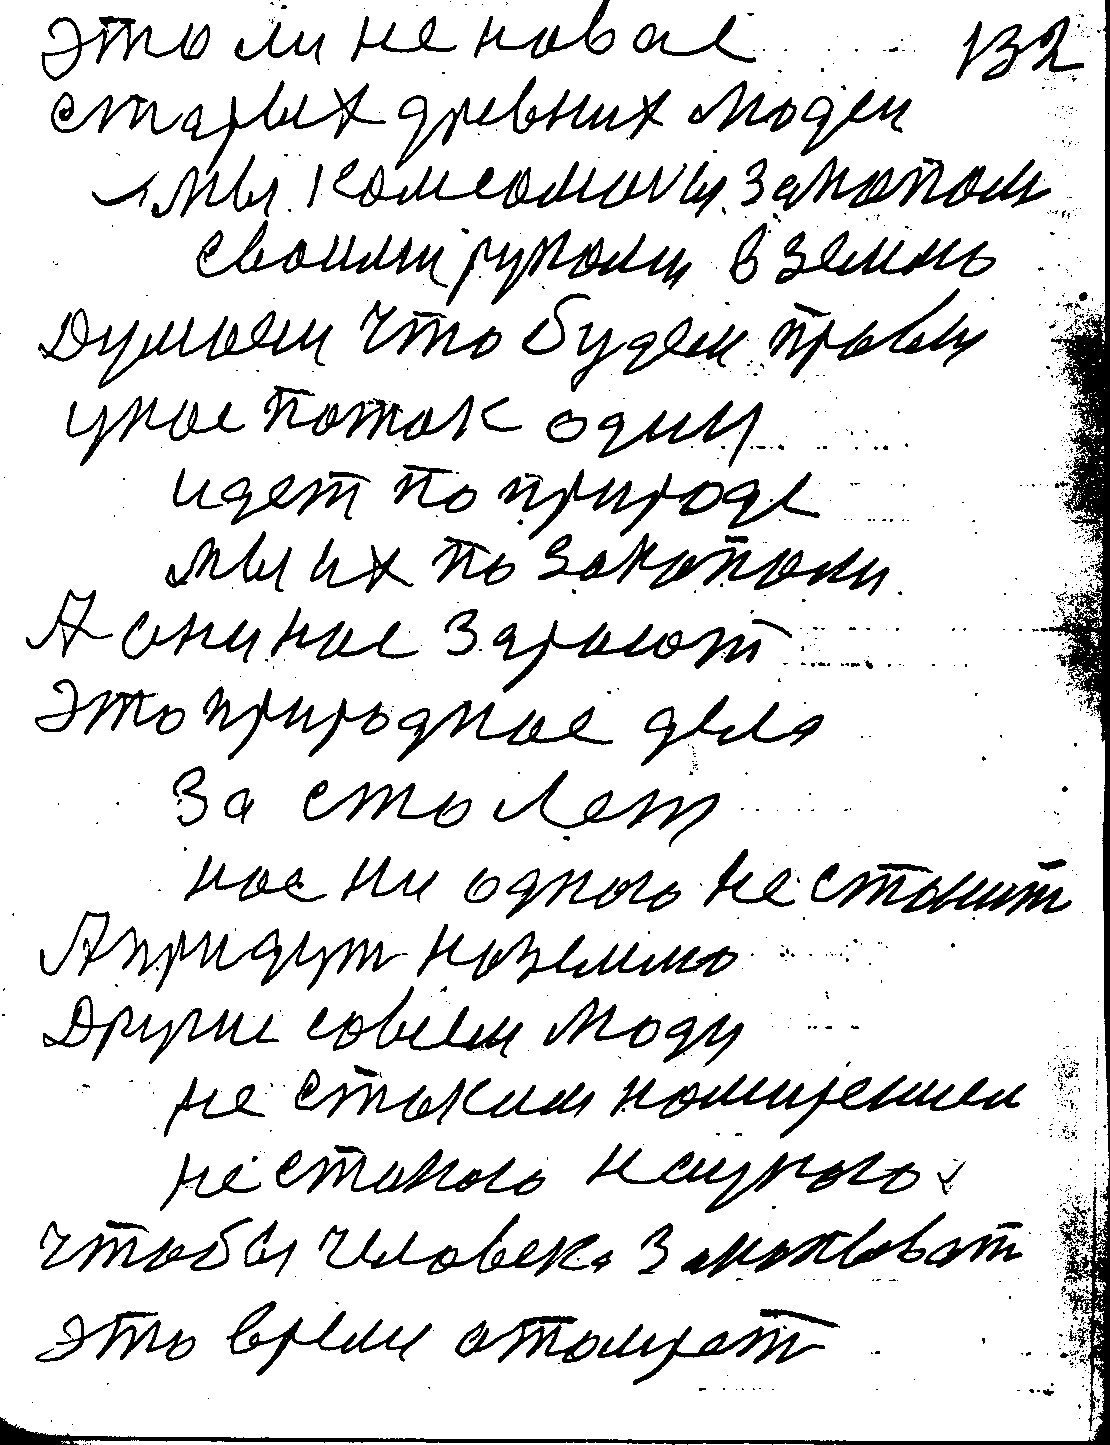 это ли не новае 132
старых древних людей
мы комсомолы закопали
своими руками в землю
думаем что будем правы
у нас поток один
идет по природе
мы их по закопали
А они нас зароют
это природнае дела
за сто лет
нас ни одного не станит
А придут на землю
Другие совсем люди
не с таким намирением
не с такою наукою
чтобы человека закоповат
это время отомрет